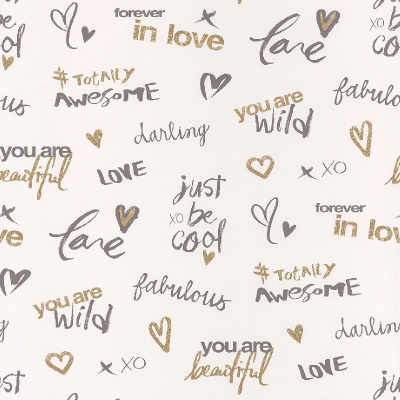 forever
in love
love
xo be
cool
#TOTALLY
AWESOME
you are
wild
fabulou
ulous
darling
you are
beautiful
LOVE
xo
just
xo be
cool
forever
in lov
ve
love
#TOTALLY
AWESOME
you are
wild
fabulous
darling
you are
beautiful
LOVE
xo
st
just